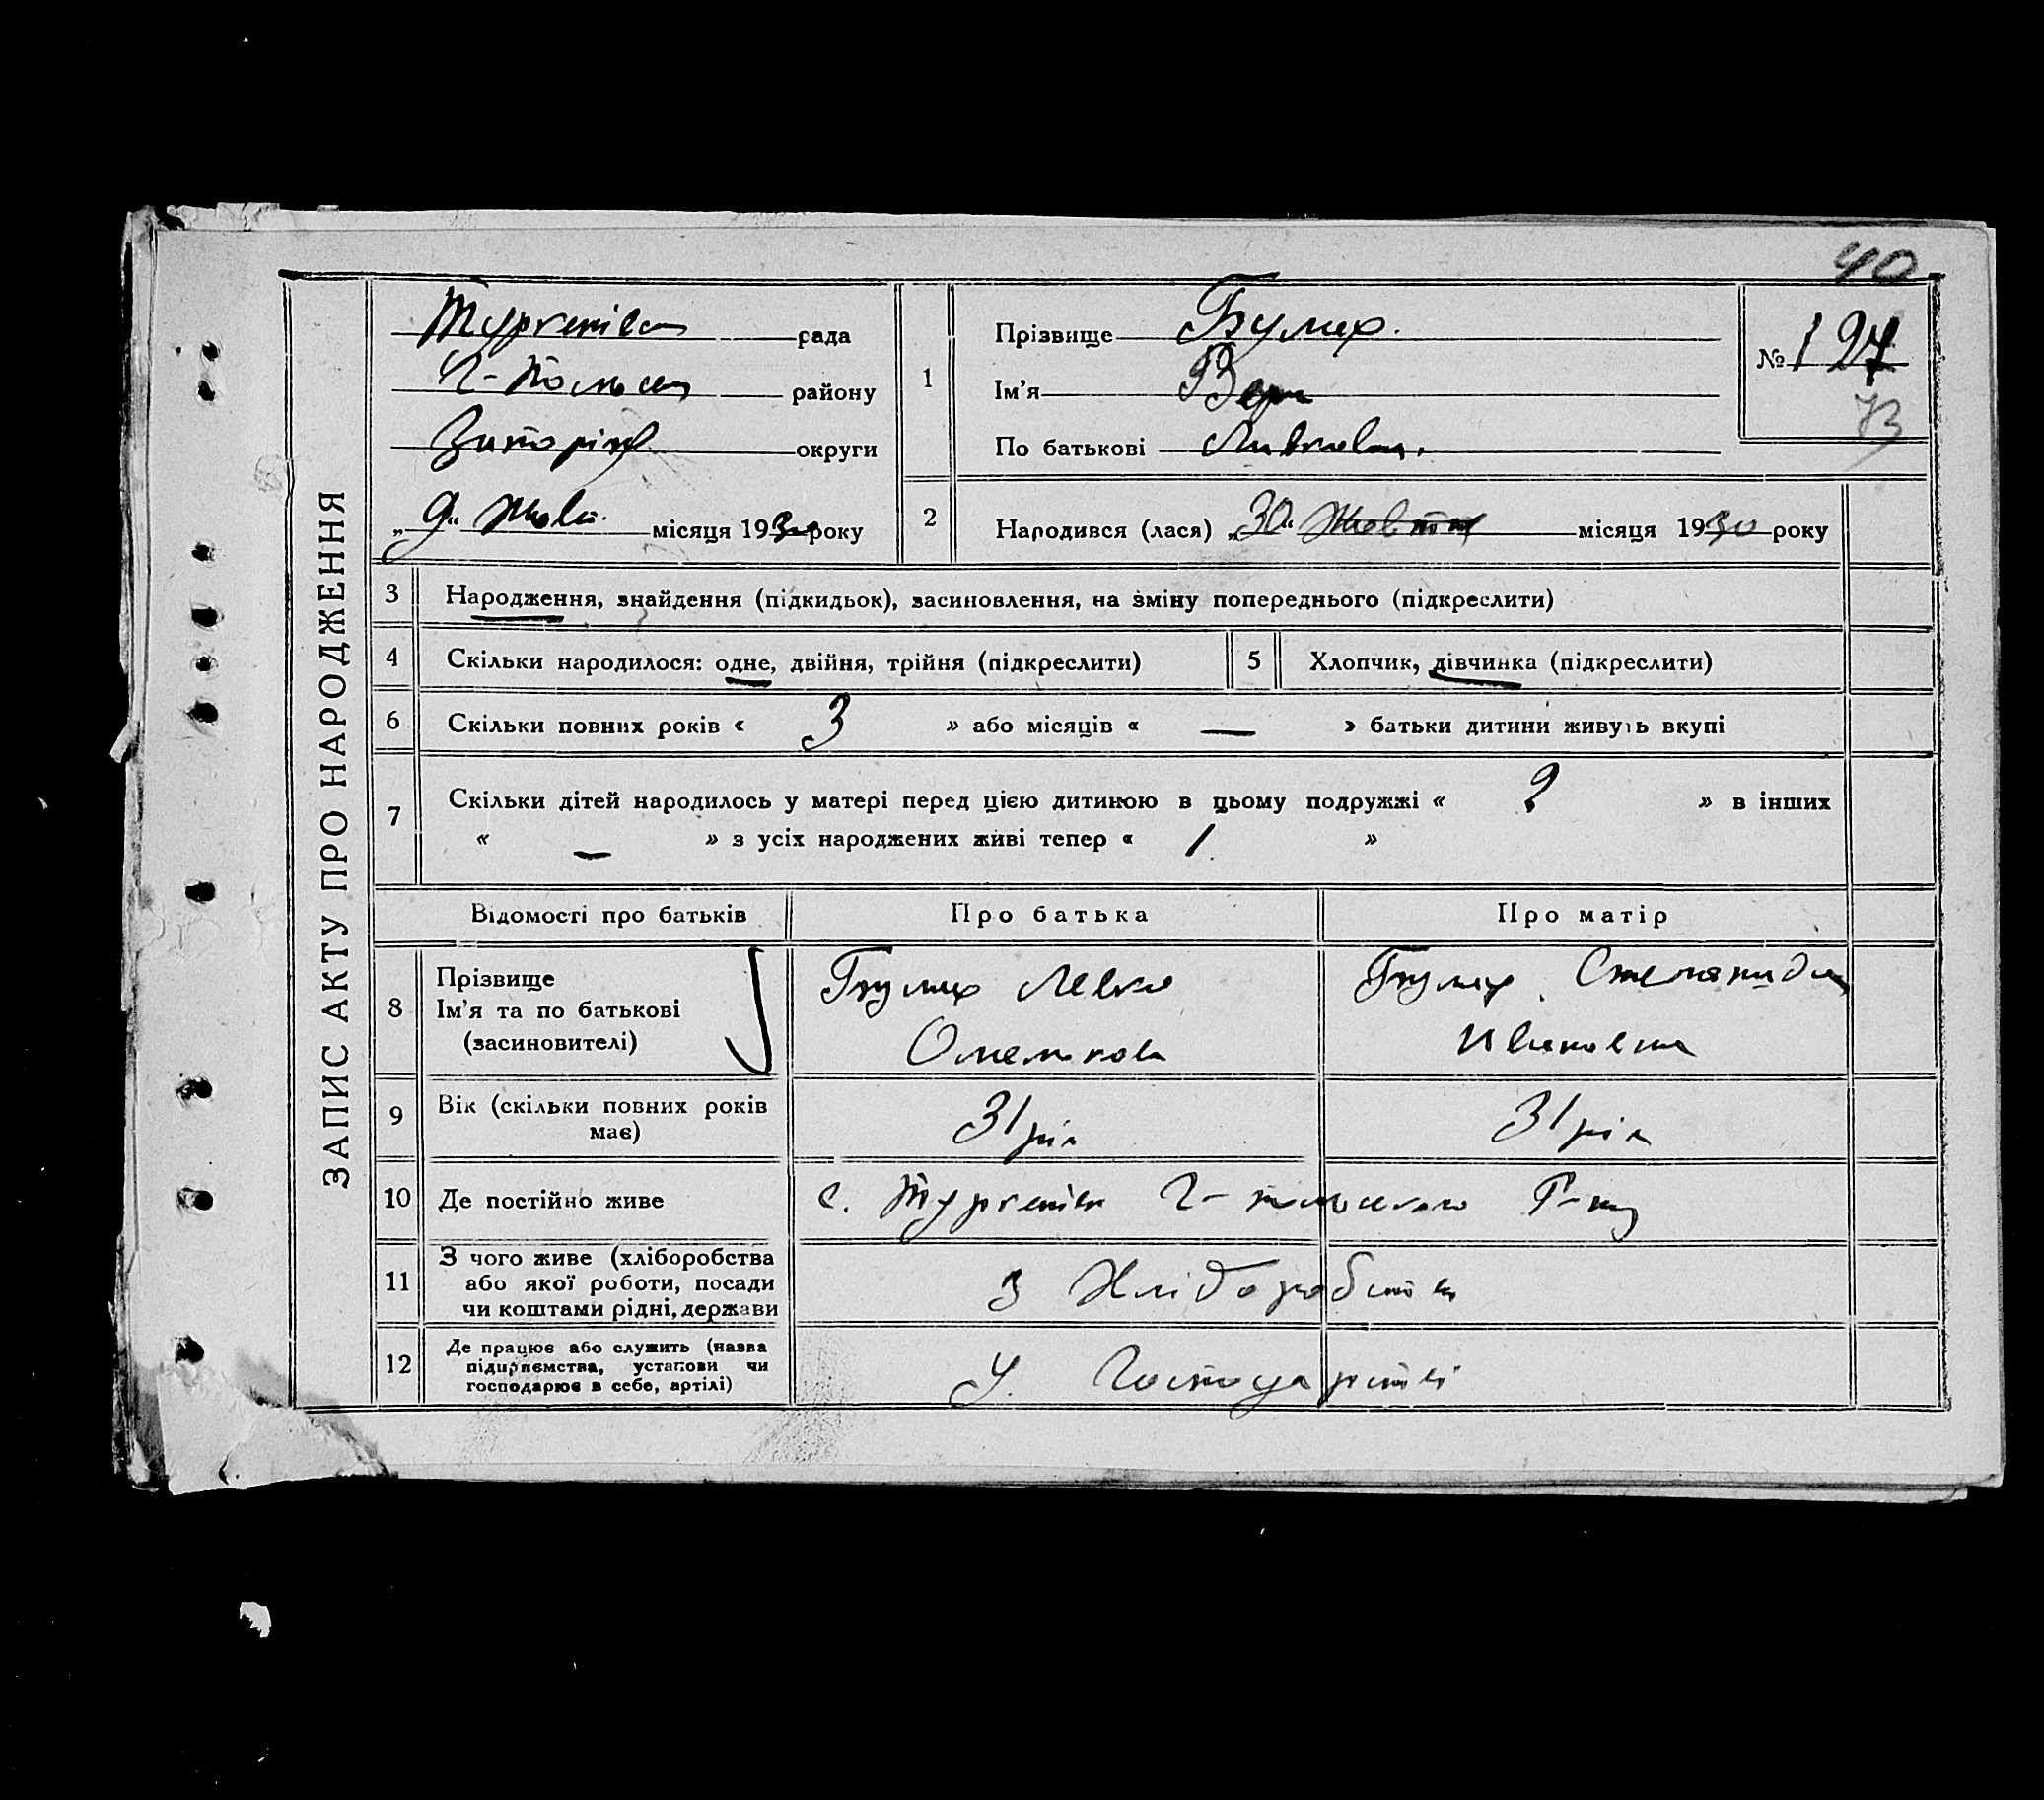 40
ЗАПИС АКТУ ПРО НАРОДЖЕННЯ
рада
району
округи
„9“ Жовт. місяця 1930 року
1
Прізвище Булих.
Ім'я Вера
По батькові
№ 127
73
2 Народився (лася) „30“ Жовтня місяця 1930 року
3 Народження, знайдення (підкидьок), засиновлення, на зміну попереднього (підкреслити)
4 Скільки народилося: одне, двійня, трійня (підкреслити)
5 Хлопчик, дівчинка (підкреслити)
6 Скільки повних років « 3 » або місяців « — » батьки дитини живуть вкупі
7 Скільки дітей народилось у матері перед цією дитиною в цьому подружжі « 2 » в інших
« — » з усіх народжених живі тепер « 1 »
Відомості про батьків Про батька Про матір
8 Прізвище
Ім'я та по батькові
(засиновителі)
Булих Левко
Омелькова
Булих Степанида
Ивановна
9 Вік (скільки повних років
має)
31 рік 31 рік
10 Де постійно живе с.
11 З чого живе (хліборобства
або якої роботи, посади
чи коштами рідні, держави
з Хліборобства
12 Де працює або служить (назва
підприємства, установи чи
господарює в себе, артілі)
У Господарстві